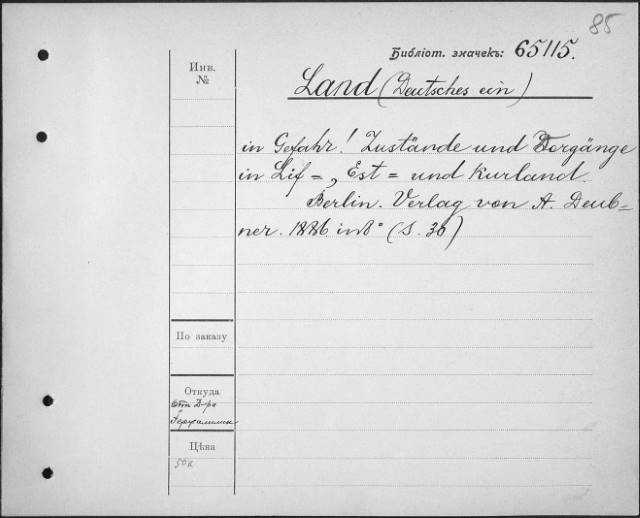 85
Библіот. значекъ: 65115.
Инв.
№
Land (Deutsches ein)
in Gefahr! Zustände und Vorgänge
in Lif=, Est= und Kurland.
Berlin. Verlag von A. Deub=
ner. 1886. in 8° (S. 36)
По заказу
Откуда
отъ Д-ра
Цѣна
50 к